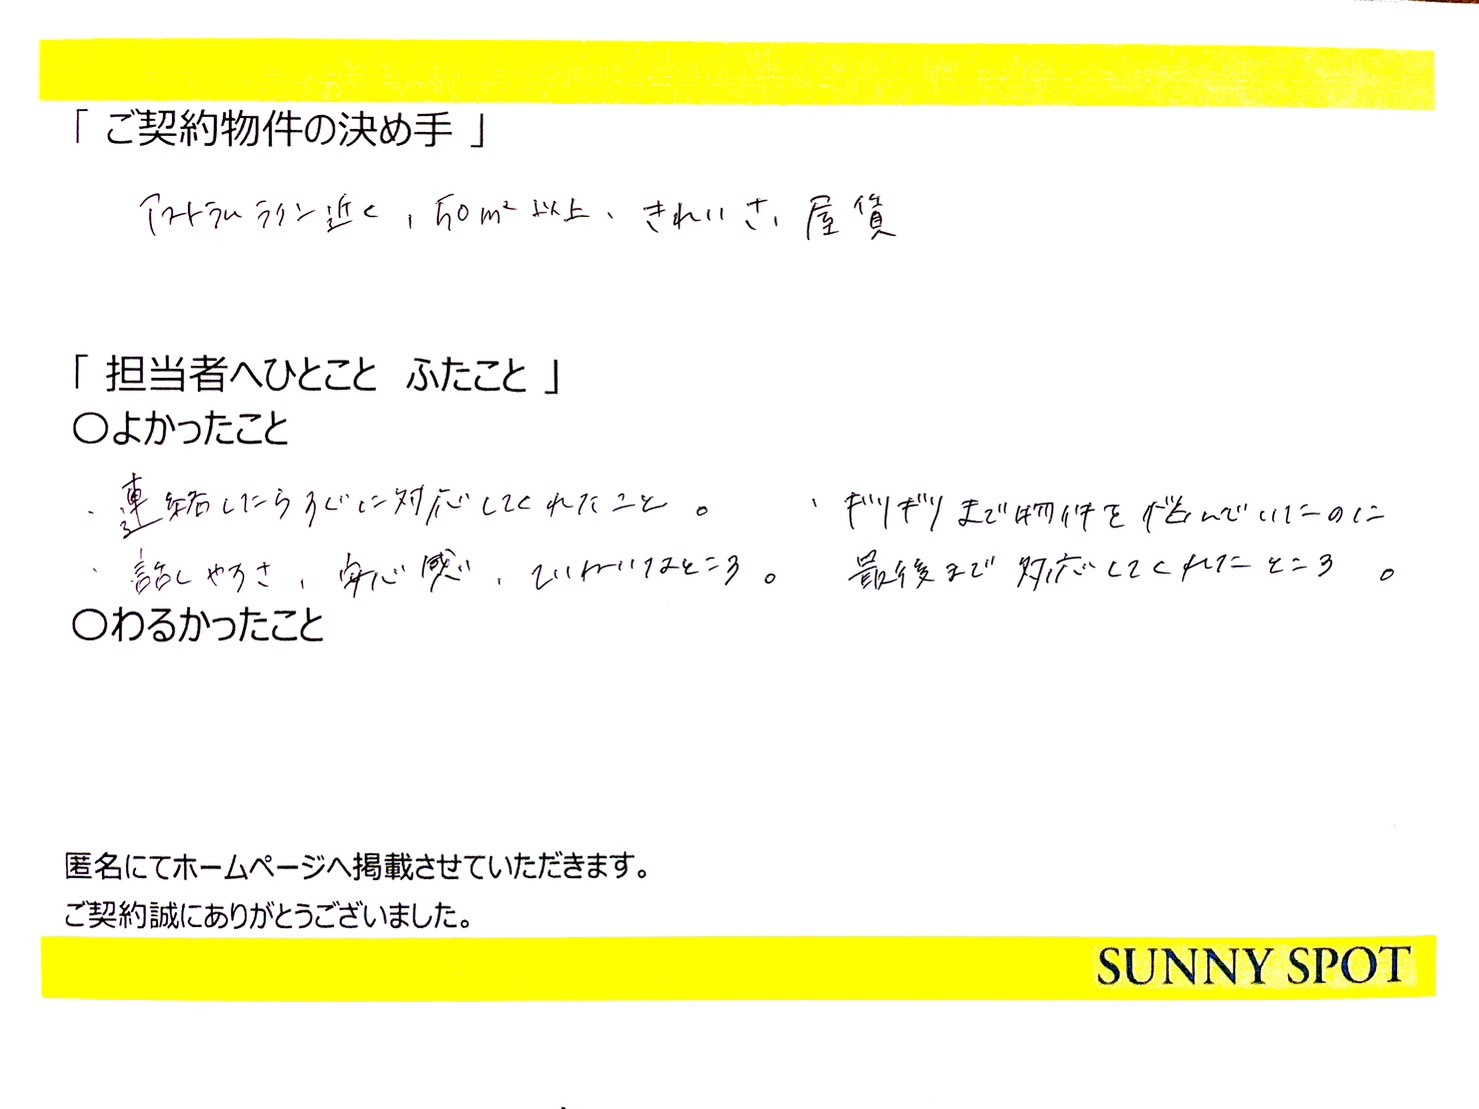 「 ご契約物件の決め手 」
アストラムライン近く、50m²以上、きれいさ、屋賃
「 担当者へひとこと　ふたこと 」
○よかったこと
・連絡したらすぐに対応してくれたこと。
・話しやすさ、安心感、ていねいなところ。
・ギリギリまで物件を悩んでいたのに
最後まで対応してくれたところ。
○わるかったこと
匿名にてホームページへ掲載させていただきます。
ご契約誠にありがとうございました。
SUNNY SPOT